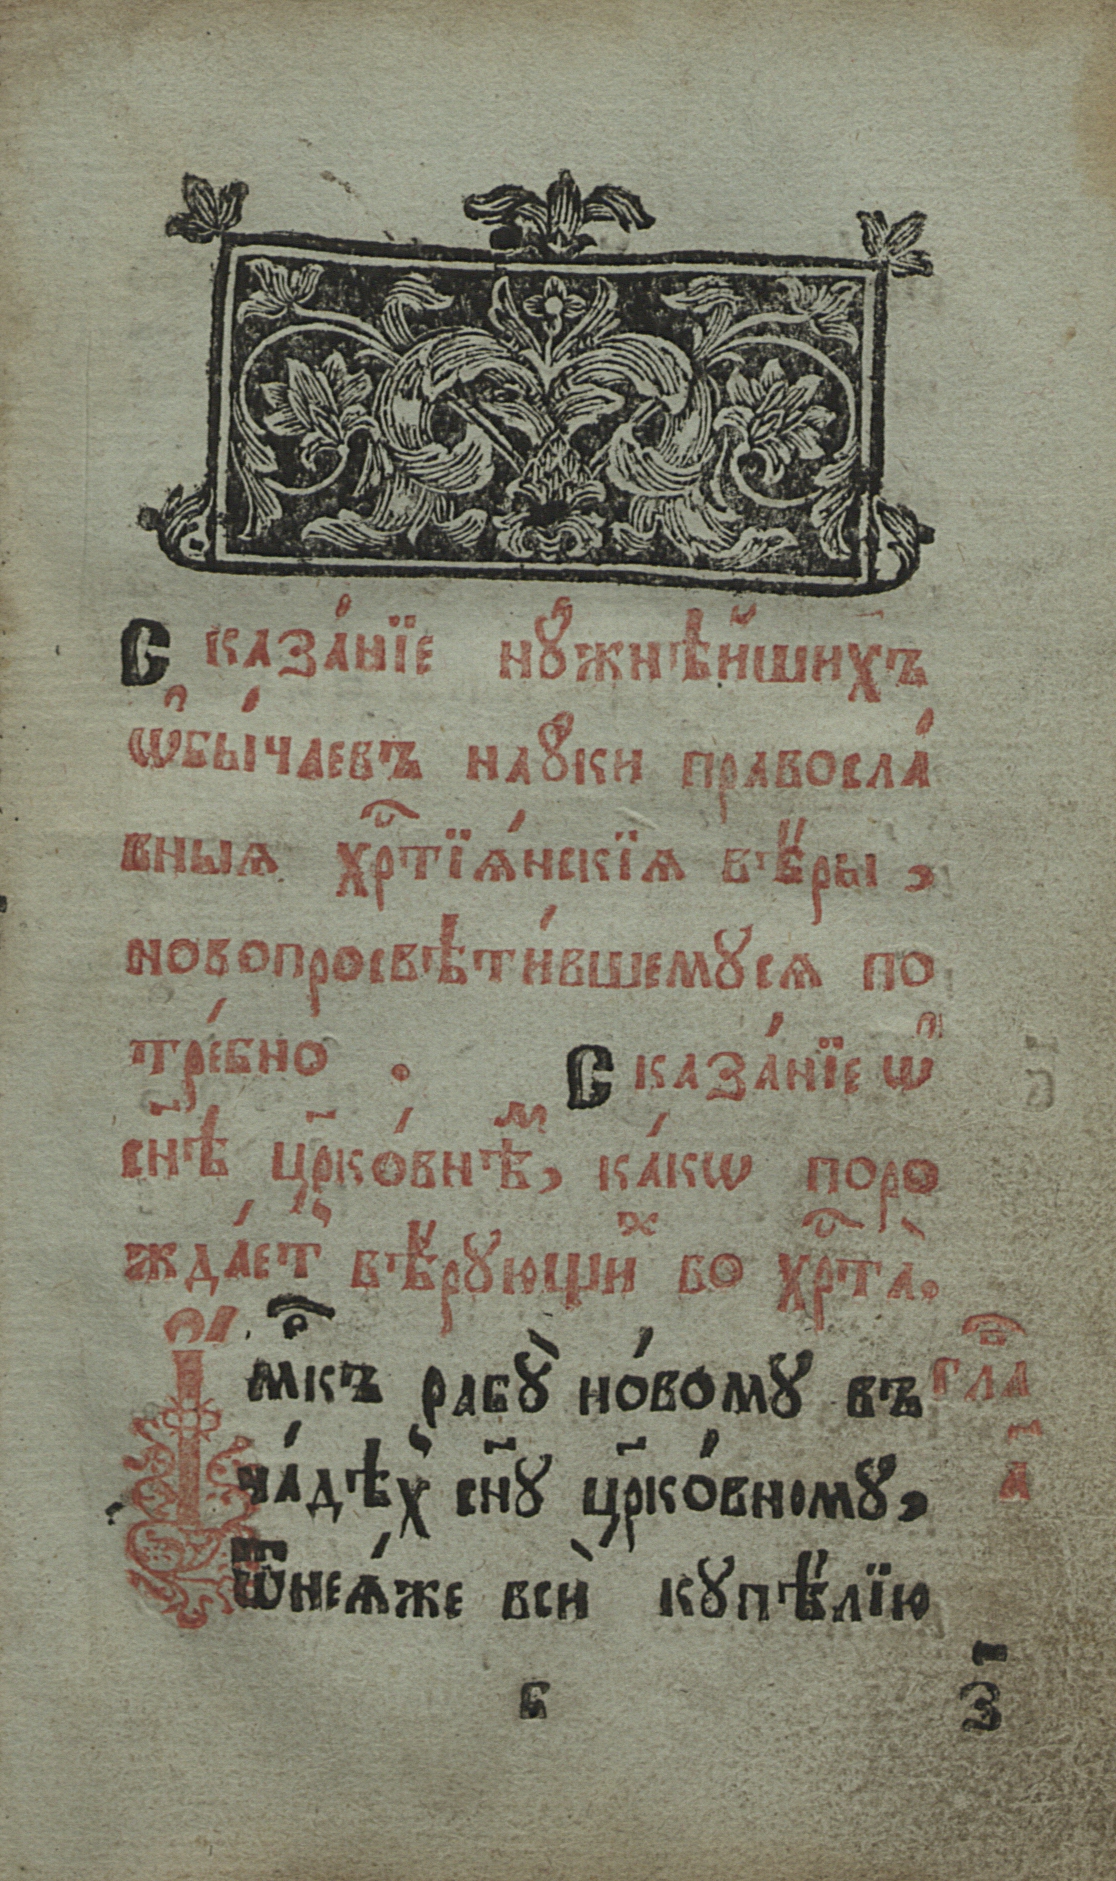 Сказа́нїе нꙋ́жнѣйшихъ
ѡ҆бы́чаевъ наꙋ́ки правосла́
вныѧ хрⷭ҇тїѧ́нскїѧ вѣ́ры,
новопросвѣти́вшемꙋсѧ по
тре́бно . Сказа́нїе ѡ҆
сн҃ѣ цр҃ко́внѣⷨ, ка́кѡ поро
жда́етъ вѣ́рꙋющиⷯ во хрⷭ҇та̀.
І҆́мⷬ҇къ рабꙋ̀ но́вомꙋ въ
ча́дѣхъ сн҃ꙋ цр҃ко́вномꙋ,
ѿнеѧ́же всѝ кꙋпѣ́лїю
глⷡ҇а
а҃
Б
з҃